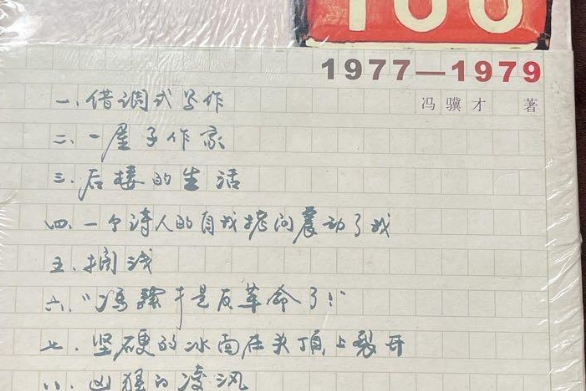 1977—1979
冯骥才 著
一.借调式写作
二.一屋子作家
三.后楼的生活
四.一个诗人的自我拷问震动了我
五.搁浅
六."冯骥才是反革命了!"
七.坚硬的冰面在头顶上裂开
八.凶猛的凌汛